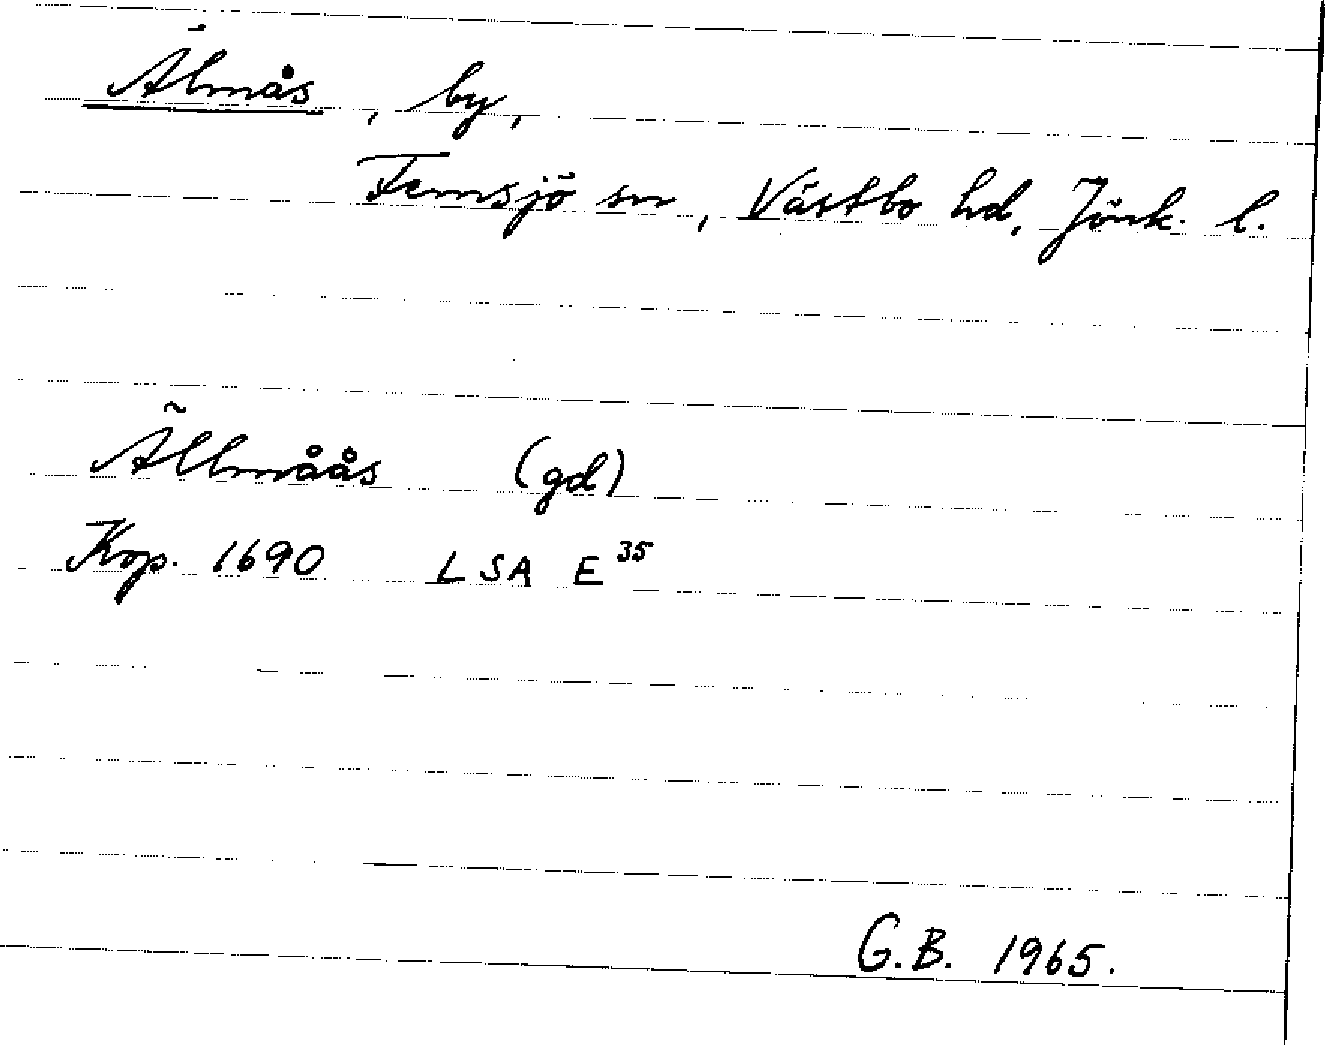 Älmås, by,
Femsjö sn, Västbo hd, Jönk. l.
Ällmåås (gd)
Kop. 1690 LSA E 35
G.B. 1965.